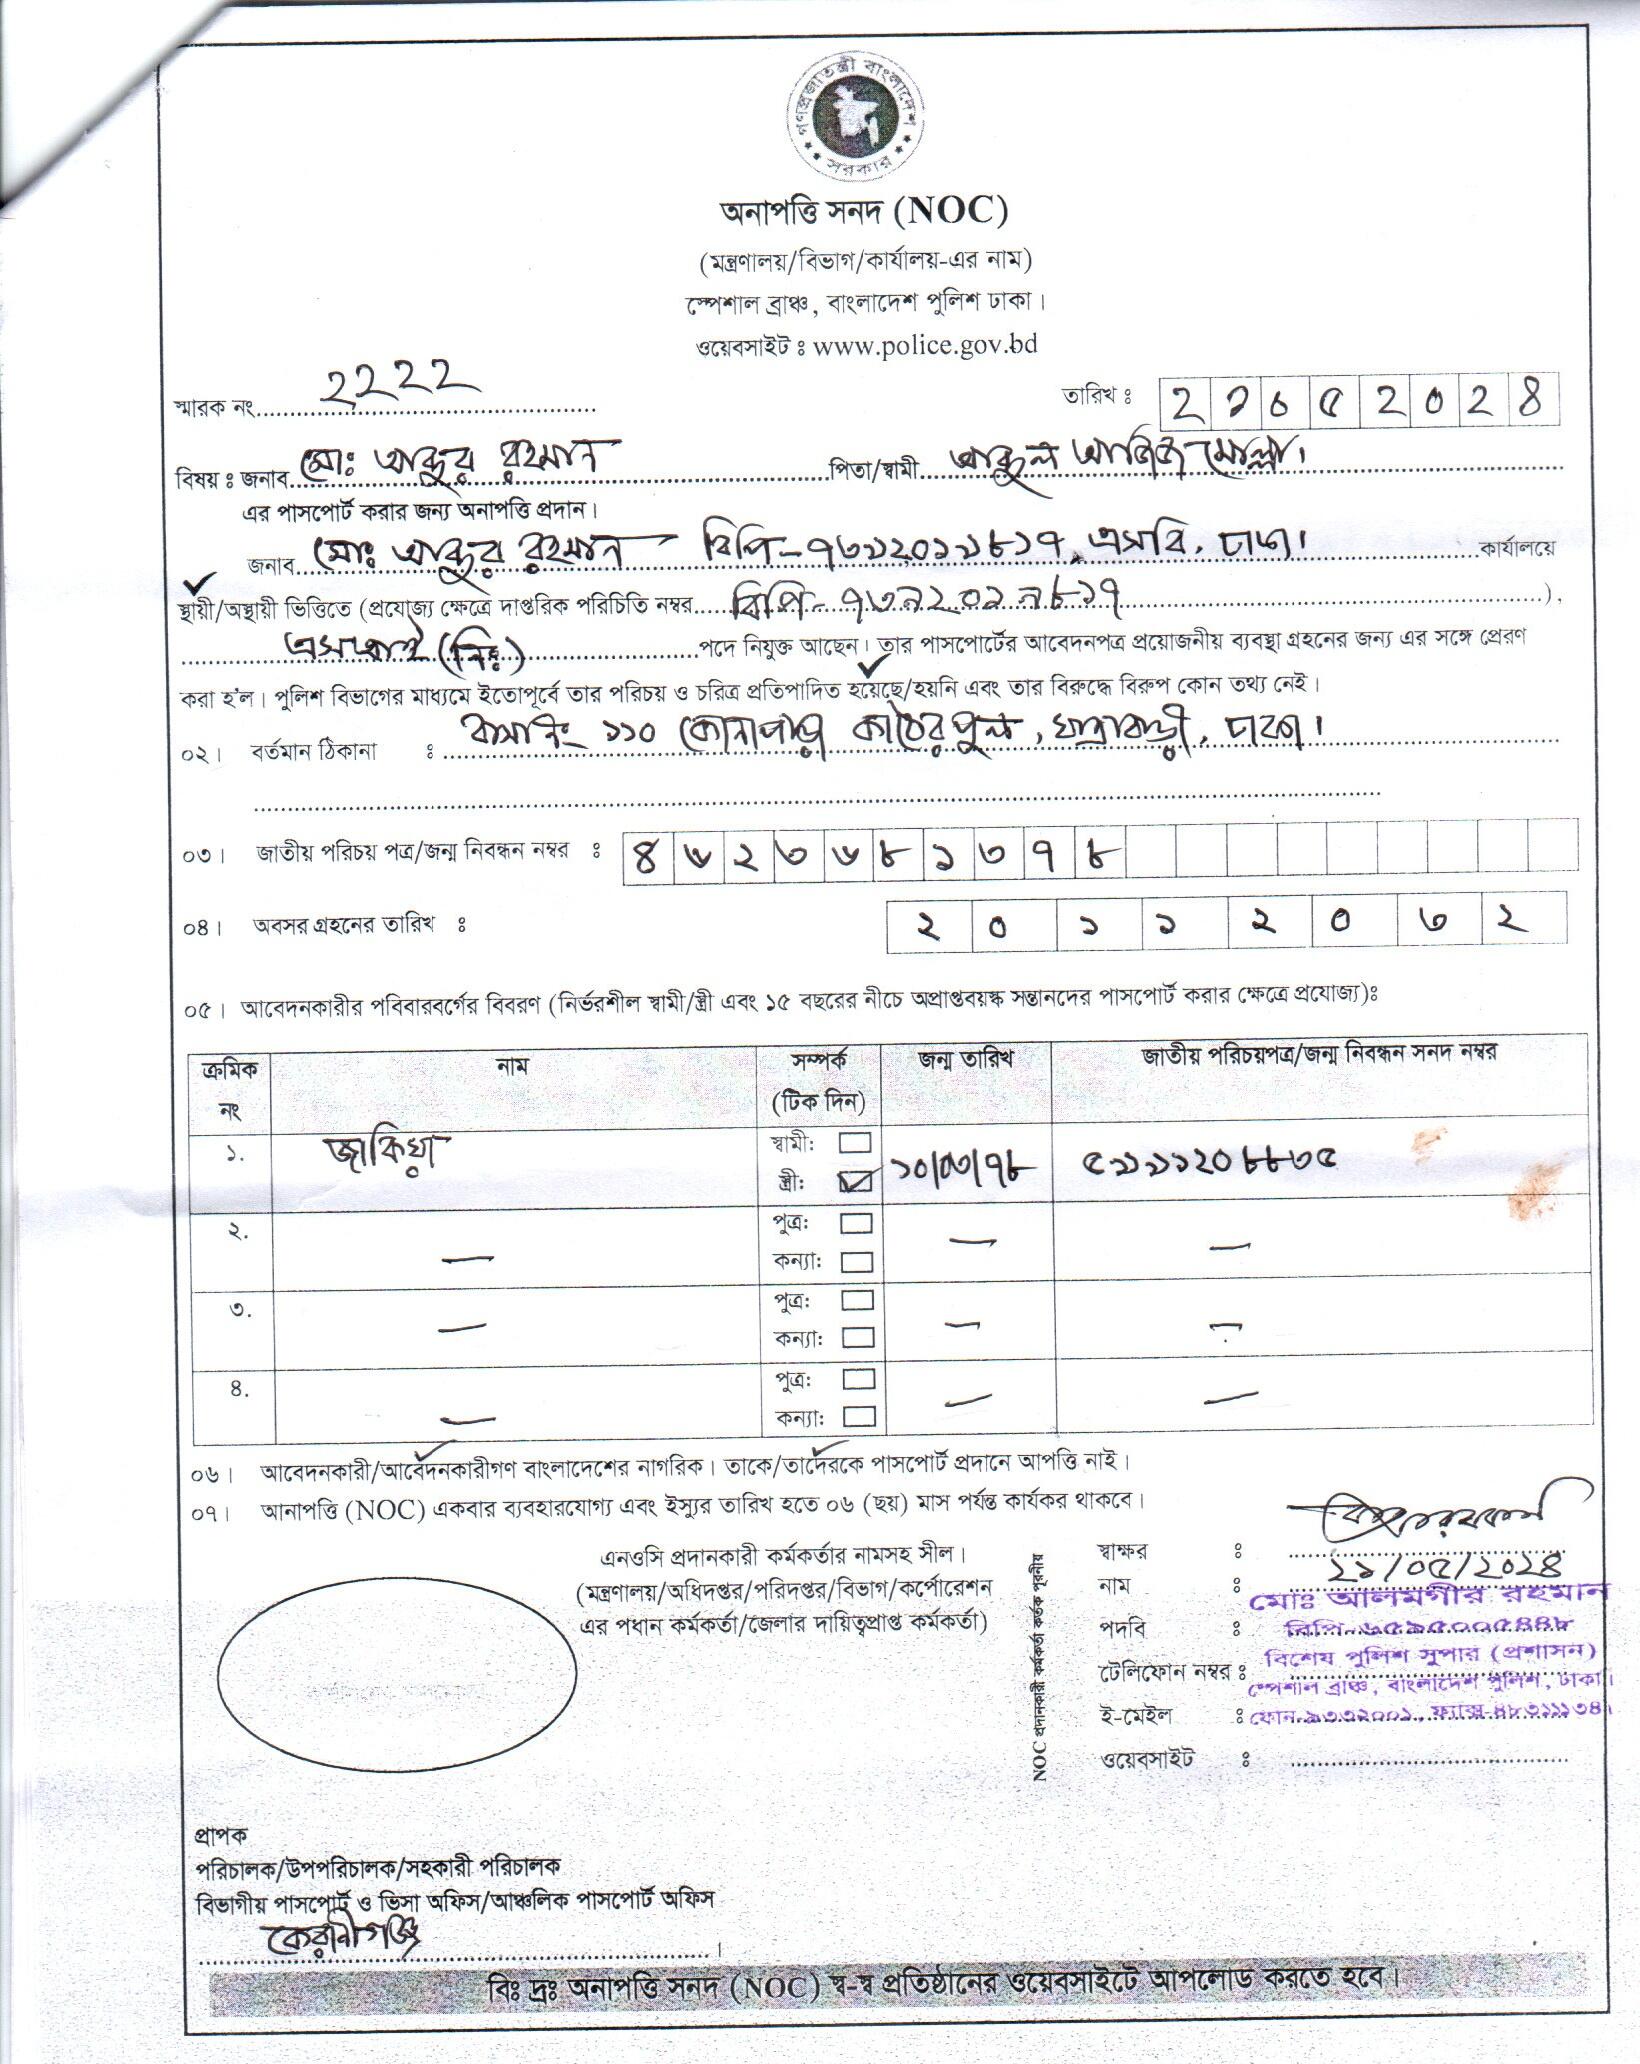 গণপ্রজাতন্ত্রী বাংলাদেশ সরকার
অনাপত্তি সনদ (NOC)
(মন্ত্রণালয়/বিভাগ/কার্যালয়-এর নাম)
স্পেশাল ব্রাঞ্চ, বাংলাদেশ পুলিশ ঢাকা।
ওয়েবসাইট ঃ www.police.gov.bd
স্মারক নং ২২২২ তারিখ ঃ
বিষয় ঃ জনাব মোঃ আব্দুর রহমান পিতা/স্বামী আব্দুল আজিজ মোল্লা।
এর পাসপোর্ট করার জন্য অনাপত্তি প্রদান।
জনাব মোঃ আব্দুর রহমান বিপি-৭৩৯২০১৯৮১৭, এসবি, ঢাকা। কার্যালয়ে
স্থায়ী/অস্থায়ী ভিত্তিতে (প্রযোজ্য ক্ষেত্রে দাপ্তরিক পরিচিতি নম্বর বিপি-৭৩৯২০১৯৮১৭),
এসআই (নিঃ) পদে নিযুক্ত আছেন। তার পাসপোর্টের আবেদনপত্র প্রয়োজনীয় ব্যবস্থা গ্রহনের জন্য এর সঙ্গে প্রেরণ
করা হ'ল। পুলিশ বিভাগের মাধ্যমে ইতোপূর্বে তার পরিচয় ও চরিত্র প্রতিপাদিত হয়েছে/হয়নি এবং তার বিরুদ্ধে বিরুপ কোন তথ্য নেই।
০২। বর্তমান ঠিকানা ঃ বাসা নং- ১১০ কোনাপাড়া কাঠেরপুল, যাত্রাবাড়ী, ঢাকা।
০৩। জাতীয় পরিচয় পত্র/জন্ম নিবন্ধন নম্বর ঃ ৪৬২৩৬৮১৩৭৮
০৪। অবসর গ্রহনের তারিখ ঃ ২০১১২০৩২
০৫। আবেদনকারীর পবিবারবর্গের বিবরণ (নির্ভরশীল স্বামী/স্ত্রী এবং ১৫ বছরের নীচে অপ্রাপ্তবয়স্ক সন্তানদের পাসপোর্ট করার ক্ষেত্রে প্রযোজ্য)ঃ
ক্রমিক নং নাম সম্পর্ক (টিক দিন) জন্ম তারিখ জাতীয় পরিচয়পত্র/জন্ম নিবন্ধন সনদ নম্বর
১. জাকিয়া স্বামী: স্ত্রী: ১০/০৩/৭৮
২. — পুত্র: কন্যা: — —
৩. — পুত্র: কন্যা: — —
৪. — পুত্র: কন্যা: — —
০৬। আবেদনকারী/আবেদনকারীগণ বাংলাদেশের নাগরিক। তাকে/তাদেরকে পাসপোর্ট প্রদানে আপত্তি নাই।
০৭। আনাপত্তি (NOC) একবার ব্যবহারযোগ্য এবং ইস্যুর তারিখ হতে ০৬ (ছয়) মাস পর্যন্ত কার্যকর থাকবে।
এনওসি প্রদানকারী কর্মকর্তার নামসহ সীল।
(মন্ত্রণালয়/অধিদপ্তর/পরিদপ্তর/বিভাগ/কর্পোরেশন
এর প্রধান কর্মকর্তা/জেলার দায়িত্বপ্রাপ্ত কর্মকর্তা)
NOC প্রদানকারী কর্মকর্তা কর্তৃক পূরনীয়
স্বাক্ষর ঃ
২১/০৫/২০২৪
নাম ঃ মোঃ আলমগীর রহমান
পদবি ঃ বিপি-৬৫৯৫০০৫৪৪৮
বিশেষ পুলিশ সুপার (প্রশাসন)
টেলিফোন নম্বর ঃ স্পেশাল ব্রাঞ্চ, বাংলাদেশ পুলিশ, ঢাকা।
ই-মেইল ঃ ফোন-৯৩৩২০০১, ফ্যাক্স-৪৮৩১১১৩৪।
ওয়েবসাইট ঃ
প্রাপক
পরিচালক/উপপরিচালক/সহকারী পরিচালক
বিভাগীয় পাসপোর্ট ও ভিসা অফিস/আঞ্চলিক পাসপোর্ট অফিস
কেরানীগঞ্জ।
বিঃ দ্রঃ অনাপত্তি সনদ (NOC) স্ব-স্ব প্রতিষ্ঠানের ওয়েবসাইটে আপলোড করতে হবে।